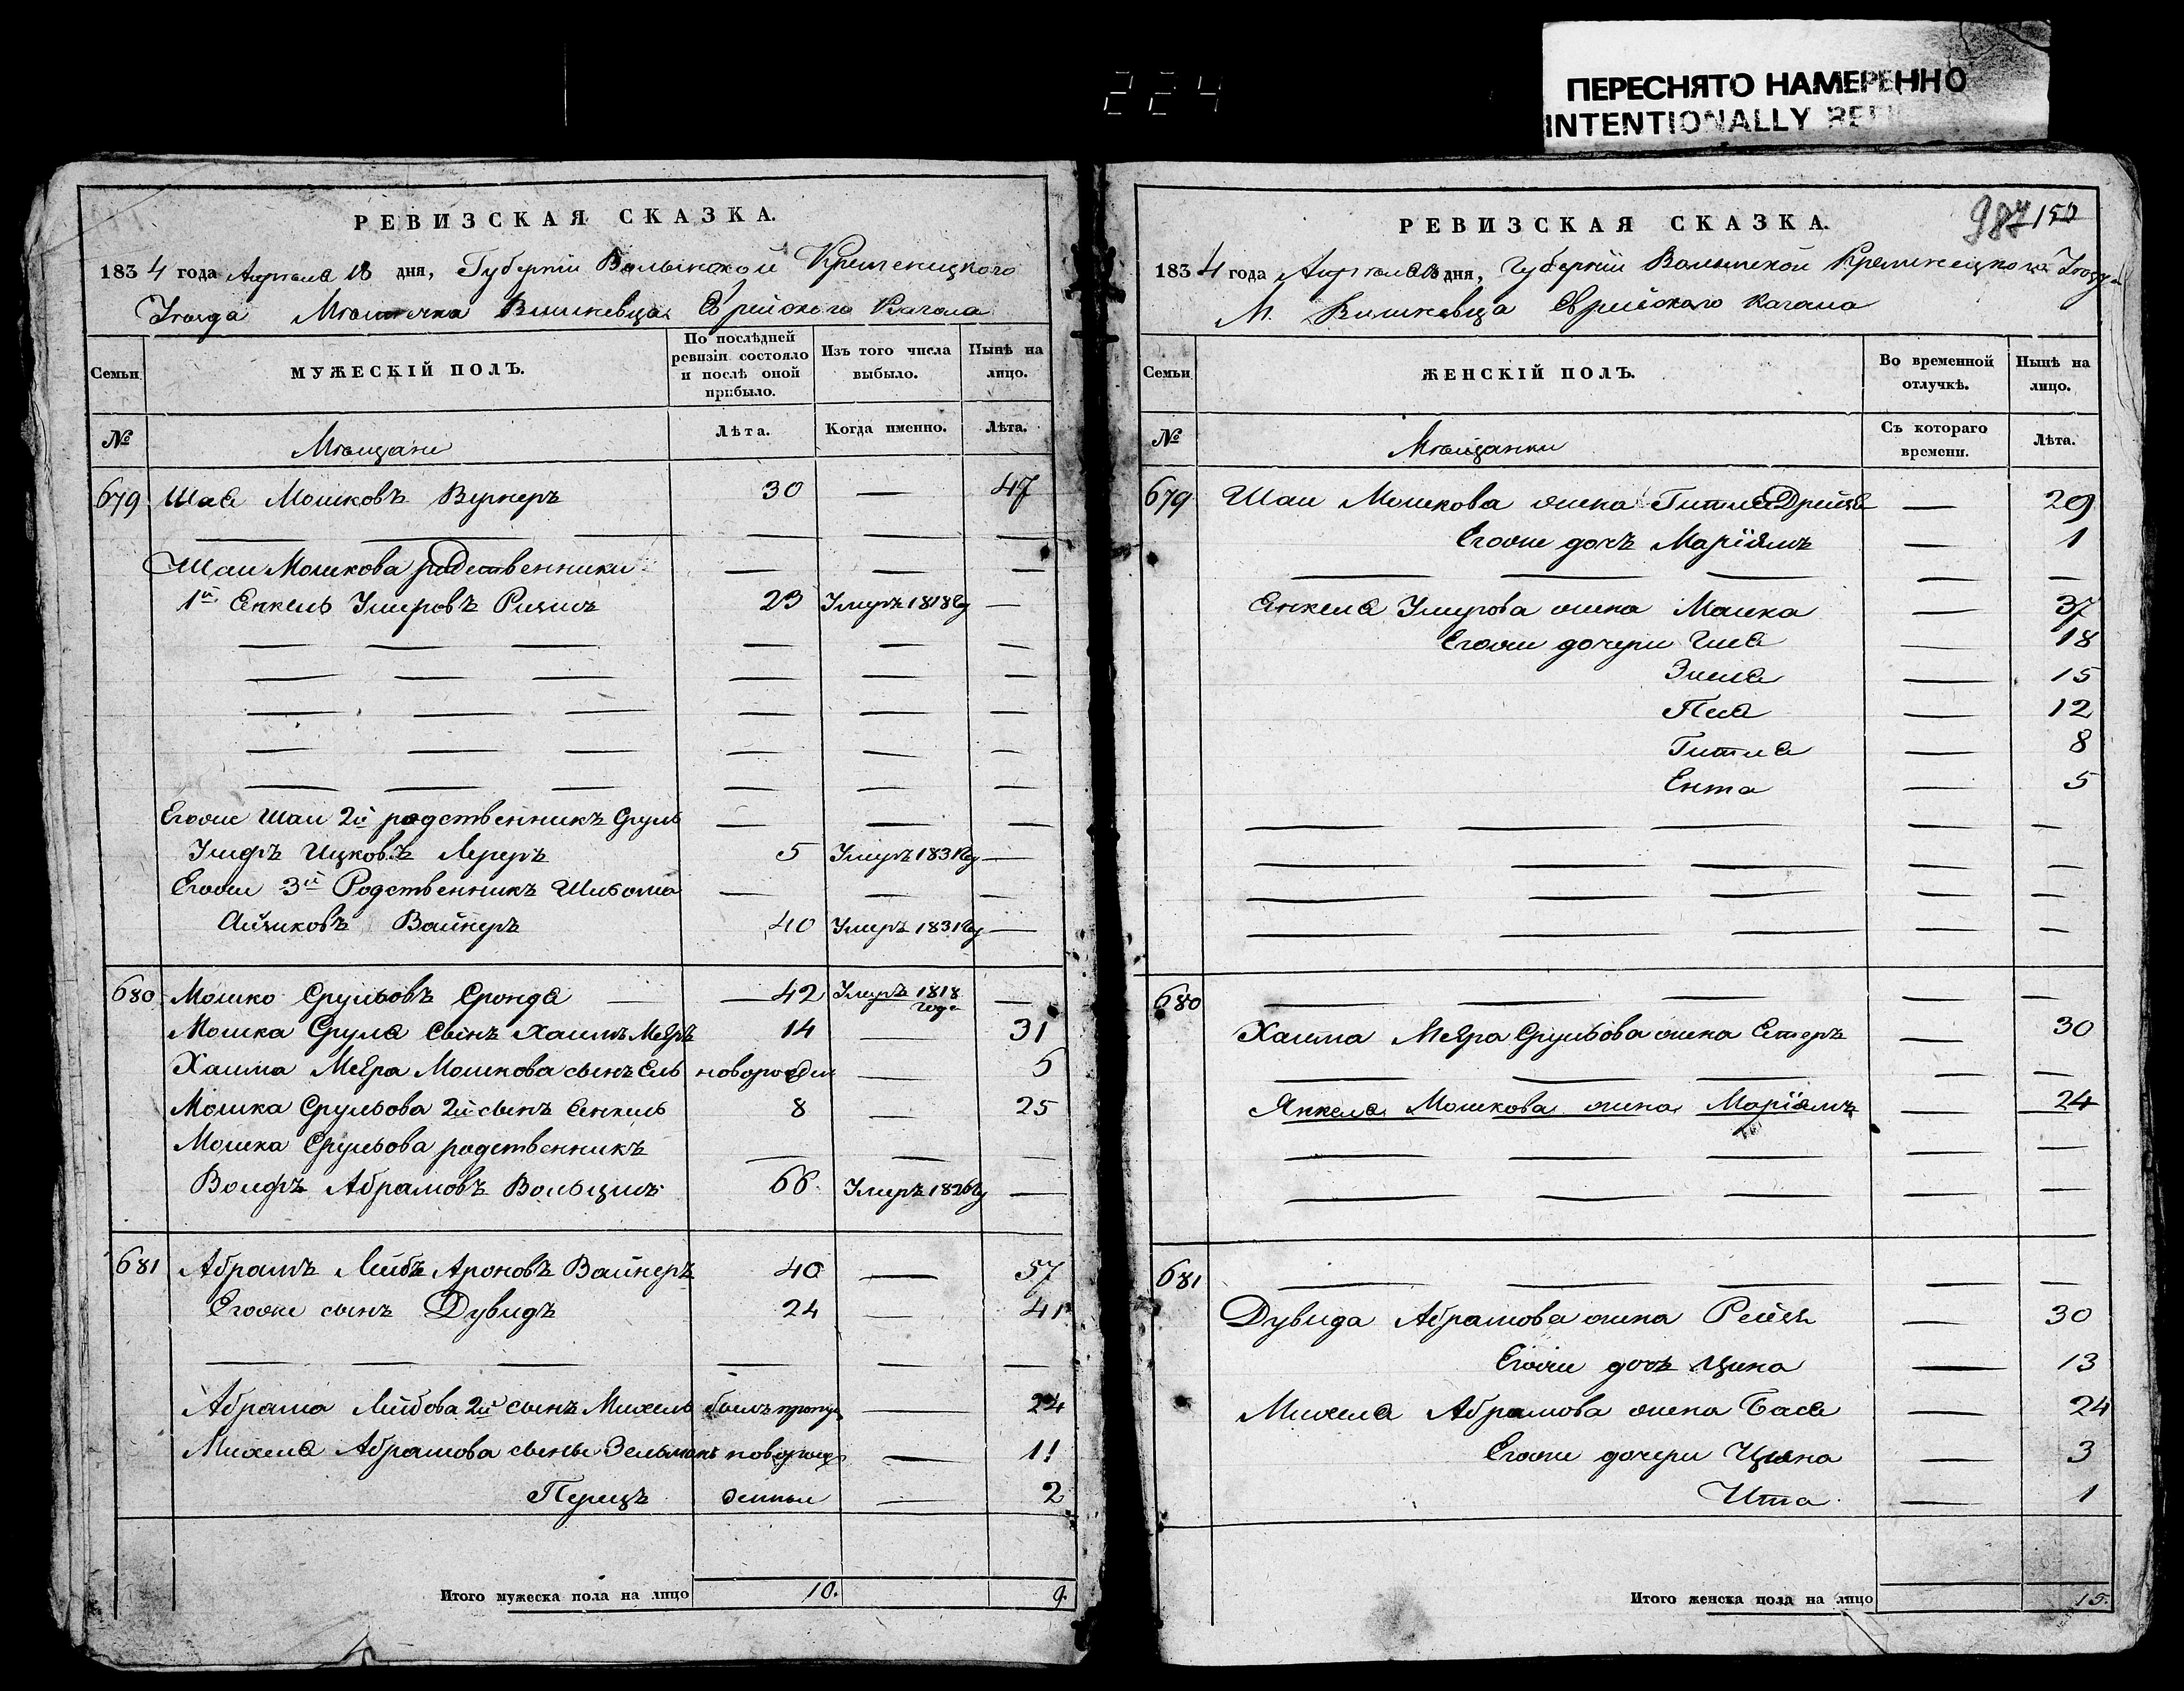 224
ПЕРЕСНЯТО НАМЕРЕННО
INTENTIONALLY
РЕВИЗСКАЯ СКАЗКА.
1834 года Апреля 18 дня, Губернiи Волынской Кременецкого
Уѣзда Мѣстечка Вишневца Еврейского Кагала
Семьи
МУЖЕСКIЙ ПОЛЪ.
По послѣдней ревизiи состояло и послѣ оной прибыло.
Изъ того числа выбыло.
Нынѣ на лицо.
№
Мѣщане
Лѣта.
Когда именно.
Лѣта.
679 Шая Мошковъ Вернеръ 30 — 47
Шаи Мошкова родственники
1й Янкель Умеровъ 23 Умеръ 1818 —
Егоже Шаи 2й родственникъ Сруль
Ицковъ Лереръ 5 Умеръ 1831 —
Егоже 3й Родственникъ Шльома
Айзиковъ Вайнеръ 40 Умеръ 1831 —
680 Мошко Срульовъ 42 Умеръ 1818 года —
Мошка Сруля сынъ Хаимъ Меяръ 14 — 31
Хаима Меяра Мошкова сынъ Ель — 5
Мошка Срульова 2й сынъ Янкель 8 — 25
Мошка Срульова родственникъ
Волфъ Абрамовъ 66 Умеръ 1826 —
681 Абрамъ Лейбъ Ароновъ Вайнеръ 40 — 57
Егоже сынъ Дувидъ 24 — 41
Абрама Лейбова 2й сынъ Михель былъ пропу — 24
Михеля Абрамова сыны Зельманъ новорож — 11
Перецъ денные — 2
Итого мужеска пола на лицо 10. 9.
987 150
РЕВИЗСКАЯ СКАЗКА.
1834 года Апреля 18 дня, Губернiи Волынской Кременецкого Уѣзда
М. Вишневца Еврейского Кагала
Семьи
ЖЕНСКIЙ ПОЛЪ.
Во временной отлучкѣ.
Нынѣ на лицо.
№
Мѣщанки
Съ котораго времени.
Лѣта.
679 Шаи Мошкова жена Гитля Дрейзя — 29
Егоже дочь Марiямъ — 1
Янкеля Умерова жена Малка — 37
Егоже дочери — 18
— 15
— 12
Гитля — 8
Ента — 5
680
Хаима Меяра Срульова жена Естеръ — 30
Янкеля Мошкова жена Марiямъ — 24
681
Дувида Абрамова жена Рейзя — 30
Егоже дочь Цина — 13
Михеля Абрамова жена Бася — 24
Егоже дочери — 3
Ита — 1
Итого женска пола на лицо 15.